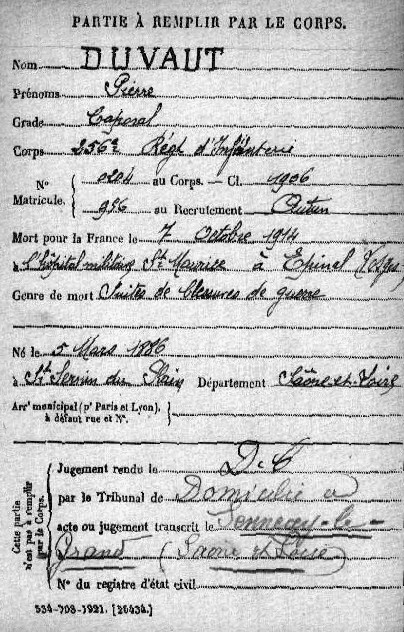 PARTIE À REMPLIR PAR LE CORPS.
Nom DUVAUT
Prénoms Pierre
Grade Caporal
Corps 256e Régt d'Infanterie
N° Matricule. 0204 au Corps. — Cl. 1906
936 au Recrutement Autun
Mort pour la France le 7 Octobre 1914
à l'hôpital militaire St Maurice à Epinal (Vosges)
Genre de mort Suites de blessures de guerre
Né le 5 Mars 1886
à St Sernin du Plain Département Saône-et-Loire
Arrt municipal (pr Paris et Lyon), à défaut rue et N°.
Cette partie n'est pas à remplir par le Corps.
Jugement rendu le D.C
par le Tribunal de Domicilié à
acte ou jugement transcrit le Sennecey-le-
Grand (Saône et Loire)
N° du registre d'état civil
534-708-1921. [26434.]